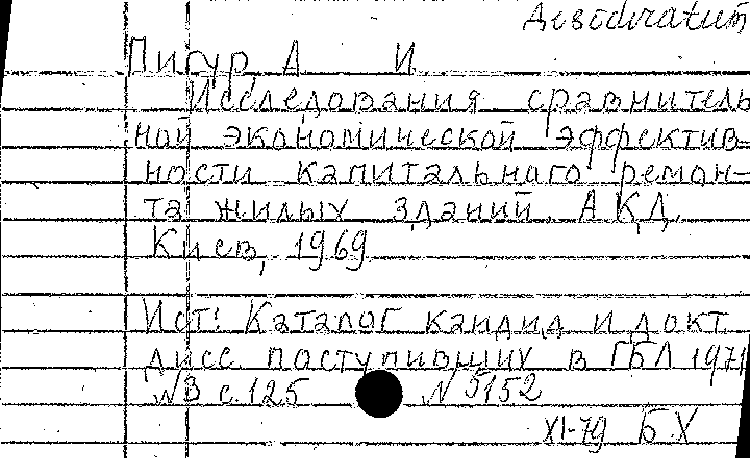 Desideratum
Пигур, А И.
Исследования сравнитель
ной экономической эффектив-
ности капитальнаго ремон-
та жилых зданий. АКД.
Киев, 1969
Ист: Каталог кандид и докт
дисс. поступивших в ГБЛ 1971
№3 с.125 № 5152
XI-79 Б.Х